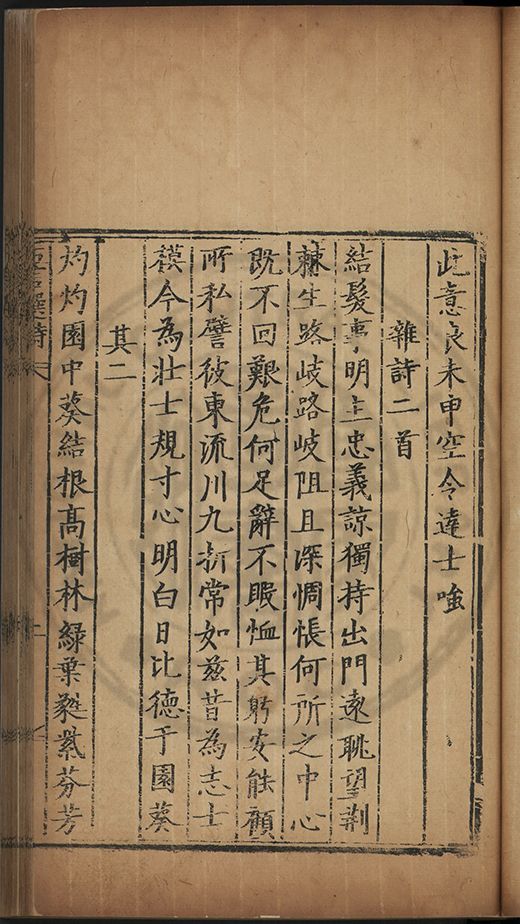 此意良未申空令達士嗤
雜詩二首
結髮事明主忠義諒獨持出門遠眺望荆
棘生路岐路岐阻且深惆悵何所之中心
既不回艱危何足辭不暇恤其躬安能顧
所私譬彼東流川九折常如茲昔為志士
模今為壯士規寸心明白日比德于園葵
其二
灼灼園中葵結根髙樹林綠葉蕤紫芬芳
選詩